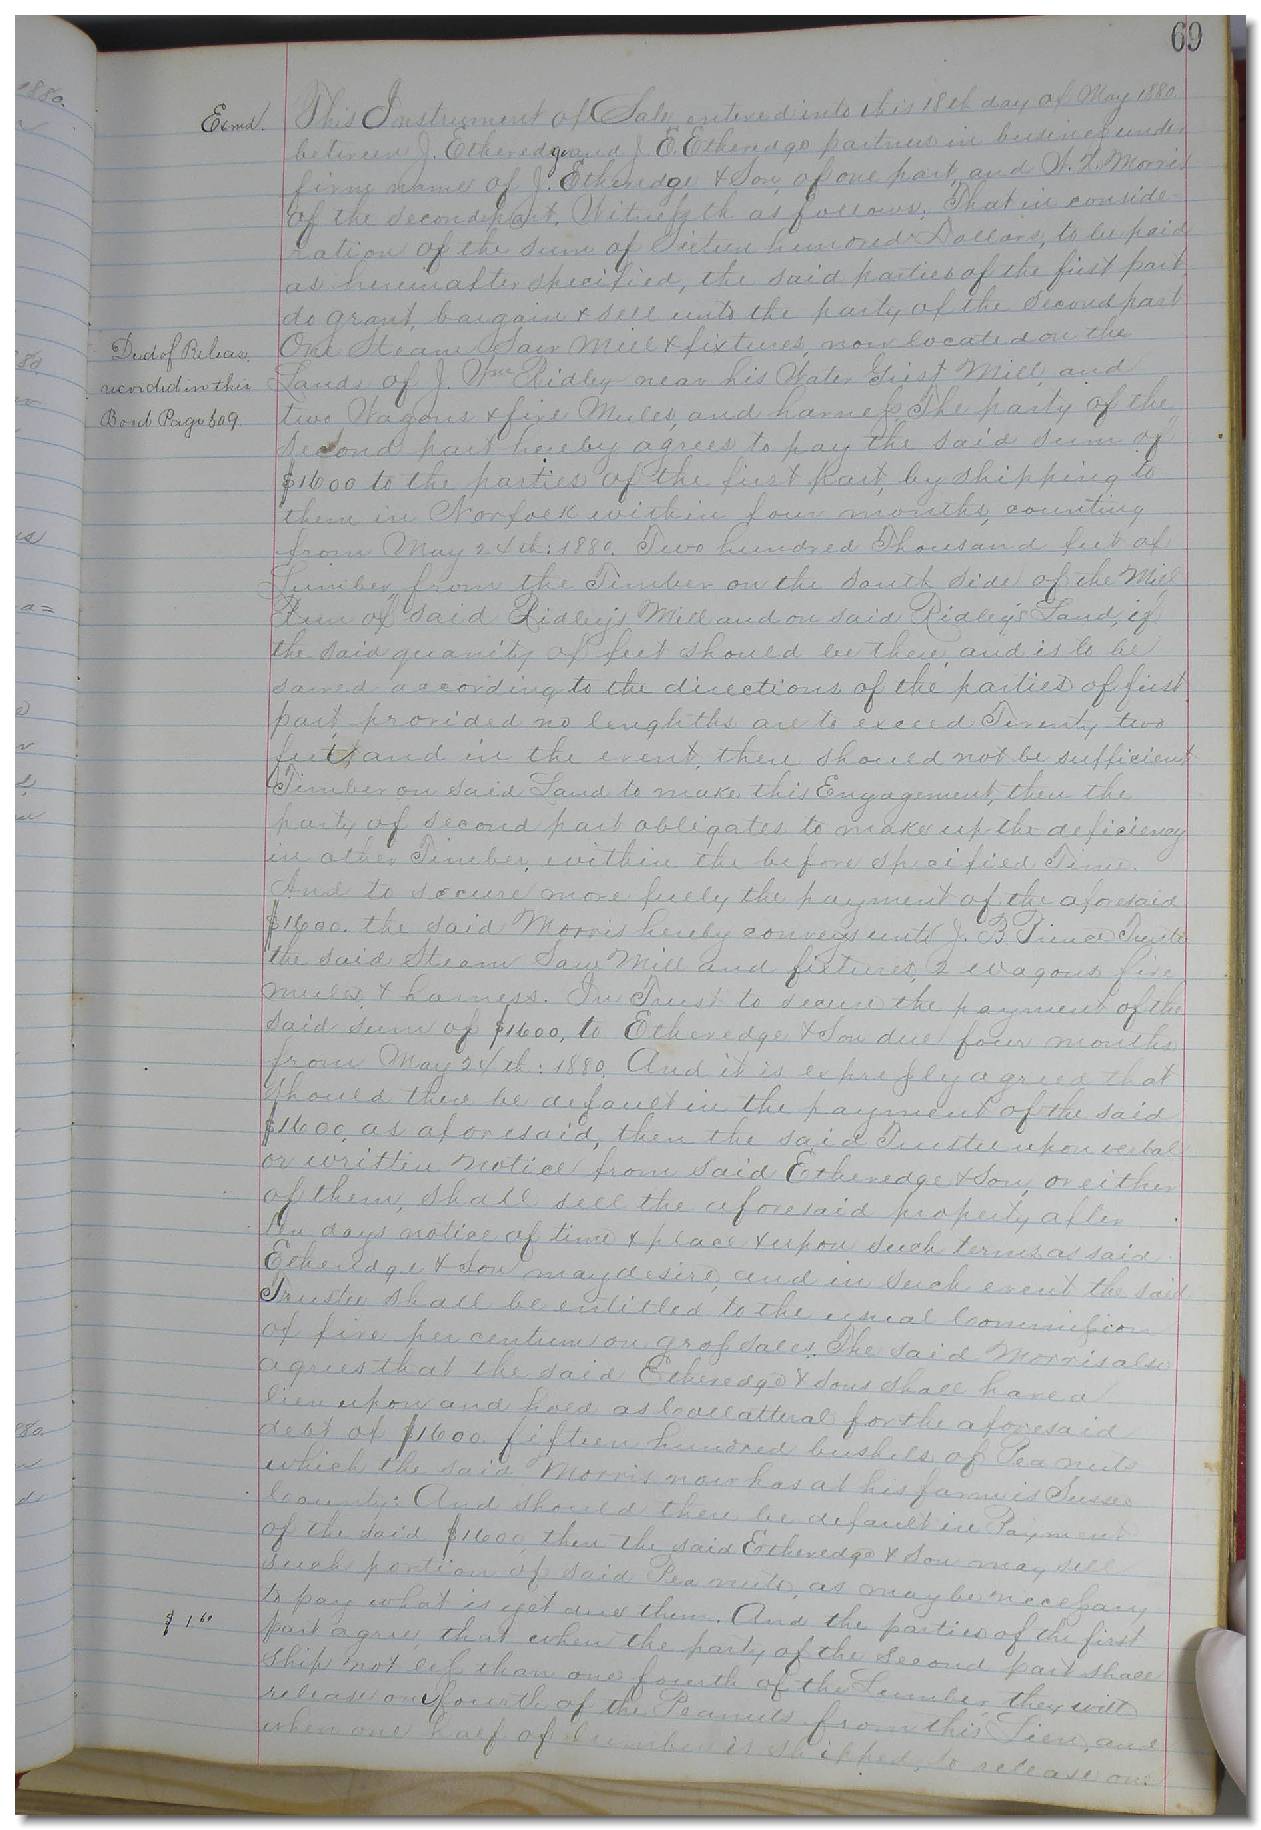 69
Exmd.
This Instrument of Sale entered into this 18th day of May 1880
between J. Etheredge and J. E. Etheredge partners in business under
firm name of J. Etheredge & Son, of one part, and Morris
of the second part, Witnesseth as follows. That in conside-
ration of the sum of Sixteen hundred Dollars, to be paid
as hereinafter specified, the said parties of the first part
do grant, bargain & sell unto the party of the second part
One Steam Saw Mill & fixtures, now located on the
Deed of Release
Lands of J. Wm Ridley near his Water Grist Mill, and
recorded in this
two Wagons & five Mules, and harness. The party of the
Book Page 509.
second part hereby agrees to pay the said sum of
$1600 to the parties of the first Part, by shipping to
them in Norfolk within four months, counting
from May 24th: 1880. Two hundred Thousand feet of
Lumber from the Timber on the south side of the Mill
Run of said Ridley's Mill and on said Ridley's Land, if
the said quanity of feet should be there, and is to be
sawed according to the directions of the parties of first
part, provided no lenghths are to exceed Twenty two
feet, and in the event, there should not be sufficient
Timber on said Land to make this Engagement, then the
party of second part obligates to make up the deficiency
in other Timber, within the before specified Time.
And to secure more fully the payment of the aforesaid
$1600. the said Morris hereby conveys unto J. B. Prince Trustee
the said Steam Saw Mill and fixtures, 2 wagons, five
mules, & harness. In Trust to secure the payment of the
said sum of $1600, to Etheredge & Son due four months
from May 24th: 1880. And it is expressly agreed that
should there be default in the payment of the said
$1600, as aforesaid, then the said Trustee upon verbal
or written notice from said Etheredge & Son, or either
of them, shall sell the aforesaid property after
ten days notice of time & place & upon such terms as said
Etheredge & Son may desire, and in such event the said
Trustee shall be entitled to the usual Commission
of five per centum on gross sales. The said Morris also
agrees that the said Etheredge & Sons shall have a
lien upon and hold as Collatteral for the aforesaid
debt of $1600. fifteen hundred bushels of Pea nuts
which the said Morris now has at his farm is Sussex
County: And should there be default in Payment
of the said $1600, then the said Etheredge & Son may sell
such portion of said Pea nuts, as may be necessary
to pay what is yet due them. And the parties of the first
$1 60
part agree, that when the party of the Second part shall
ship not less than one fourth of the Lumber, they will
release one fourth of the Peanuts from this Lien, and
when one half of Lumber is shipped, to release one